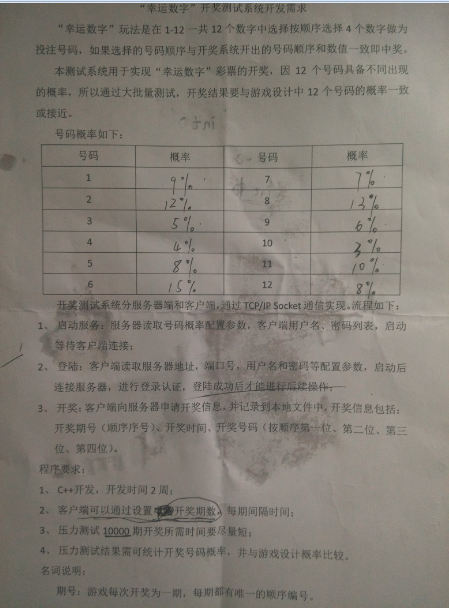 “幸运数字”开奖测试系统开发需求
“幸运数字”玩法是在 1-12 一共 12 个数字中选择按顺序选择 4 个数字做为
投注号码，如果选择的号码顺序与开奖系统开出的号码顺序和数值一致即中奖。
本测试系统用于实现“幸运数字”彩票的开奖，因 12 个号码具备不同出现
的概率，所以通过大批量测试，开奖结果要与游戏设计中 12 个号码的概率一致
或接近。
号码概率如下：
号码 概率 号码 概率
1 9% 7 7%
2 12% 8 13%
3 5% 9 6%
4 4% 10 3%
5 8% 11 10%
6 15% 12 8%
开奖测试系统分服务器端和客户端，通过 TCP/IP Socket 通信实现。流程如下：
1、 启动服务：服务器读取号码概率配置参数，客户端用户名、密码列表，启动
等待客户端连接；
2、 登陆：客户端读取服务器地址，端口号，用户名和密码等配置参数，启动后
连接服务器，进行登录认证，登陆成功后才能进行后续操作；
3、 开奖：客户端向服务器申请开奖信息，并记录到本地文件中，开奖信息包括：
开奖期号（顺序序号）、开奖时间、开奖号码（按顺序第一位、第二位、第三
位、第四位）。
程序要求：
1、 C++开发，开发时间 2 周；
2、 客户端可以通过设置开奖期数，每期间隔时间；
3、 压力测试 10000 期开奖所需时间要尽量短；
4、 压力测试结果需可统计开奖号码概率，并与游戏设计概率比较。
名词说明：
期号：游戏每次开奖为一期，每期都有唯一的顺序编号。